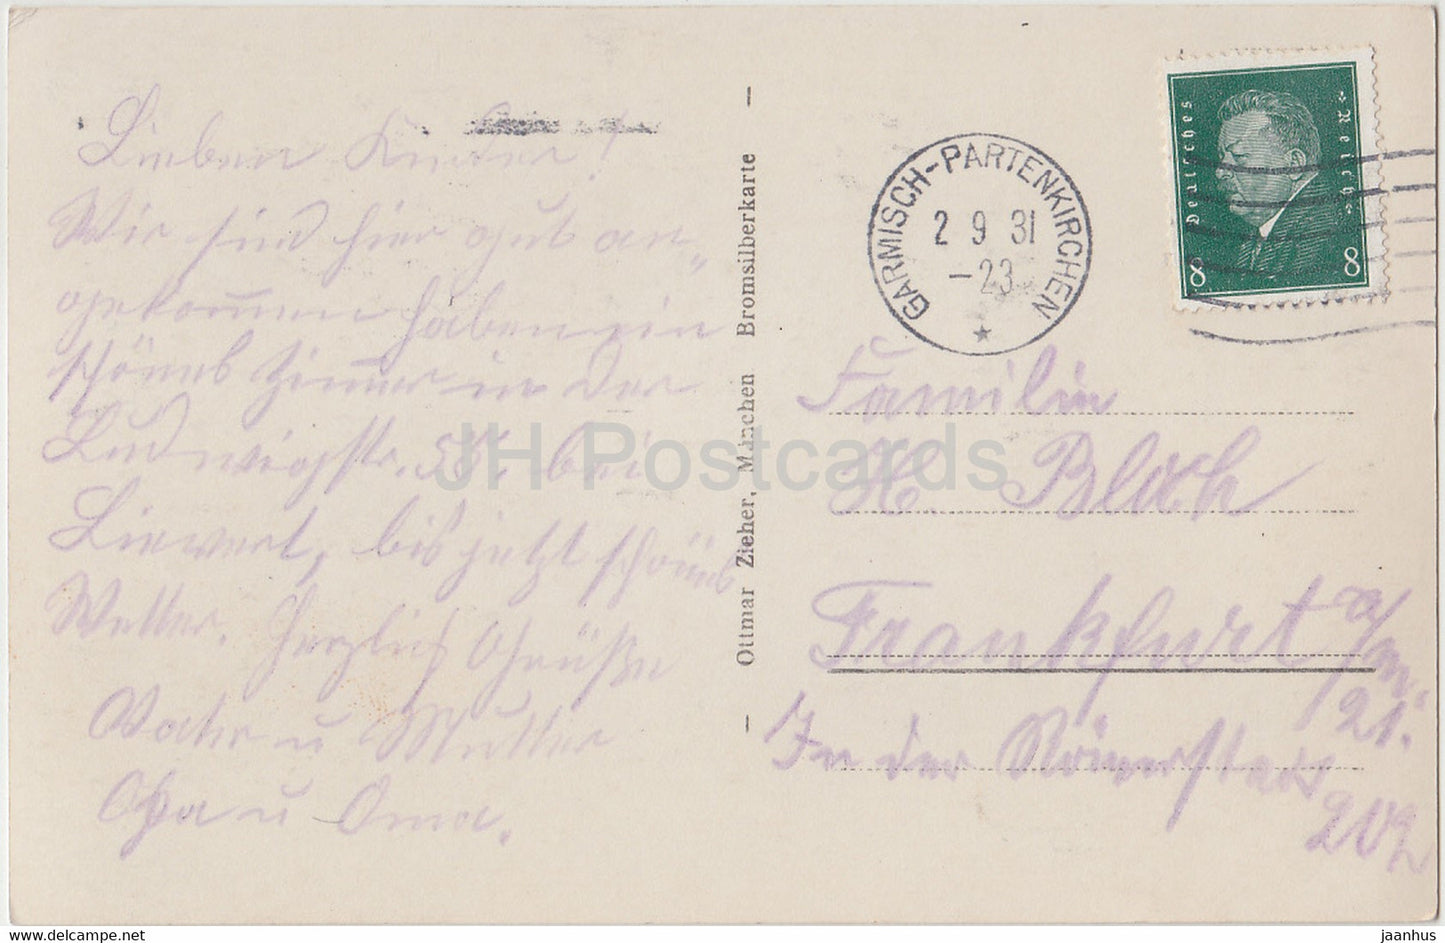 Lieben Kinder!
Wir sind hier gut an„
gekommen haben ein
schönes Zimmer in der
Ludwigstr. 55. bei
Lievert, bis jetzt schönes
Wetter. Herzlich Grüße
Vater u Mutter
Opa u Oma.
Ottmar Zieher, München Bromsilberkarte
GARMISCH-PARTENKIRCHEN
2 9 31
-23
Deutsches Reich
8 8
Familie
H. Bloch
Frankfurt a/M.
21.
In der Römerstadt
202
JH Postcards
www.delcampe.net
jaanhus